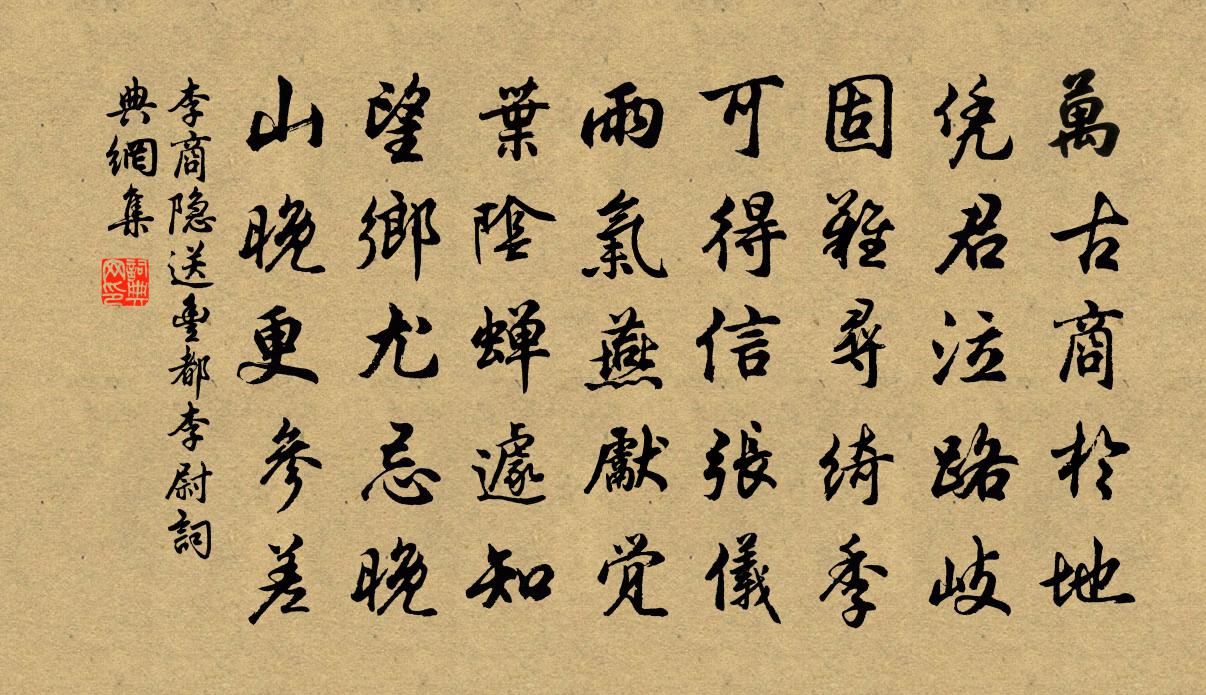 萬古商於地
凭君泣路岐
固難尋綺季
可得信張儀
雨氣燕獻覚
葉陰蝉遽知
望鄉尤忌晚
山晚更參差
李商隐送豐都李尉詞
典網集
詞典
网印